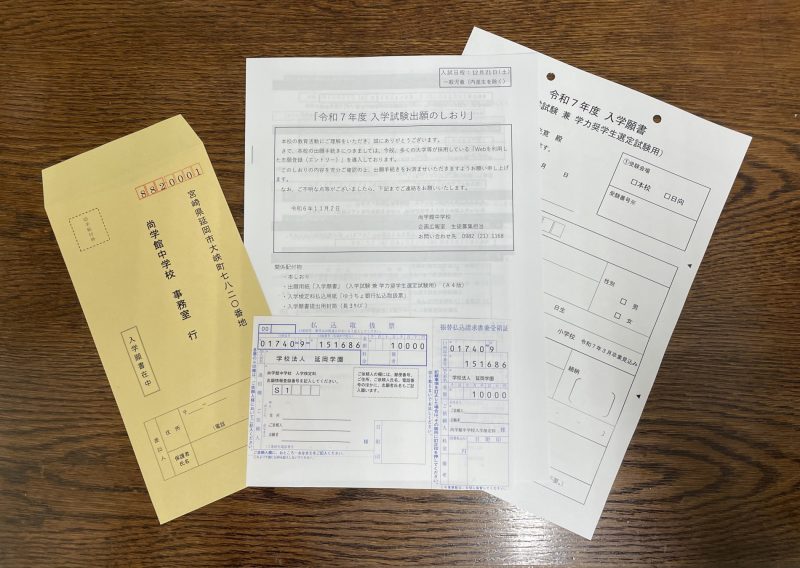 8820001
宮崎県延岡市大峡町七八二〇番地
尚学館中学校 事務室 行
入学願書在中
差出人
住所
(電話
保護者氏名
入試日程:12月21日(土)
一般児童(内進生を除く)
「令和7年度 入学試験出願のしおり」
本校の教育活動にご理解をいただき、誠にありがとうございます。
さて、本校の出願手続きにつきましては、今回、多くの大学等が採用している「Webを利用し
た志願登録(エントリー)」を導入しております。
このしおりの内容を充分ご確認の上、出願手続きをお済ませいただきますようお願い申し上げ
ます。
なお、ご不明な点等がございましたら、下記までご連絡をお願いいたします。
令和6年11月7日
尚学館中学校
企画広報室 生徒募集担当
お問い合わせ先 0982(21)1168
関係配付物
・本しおり
・出願用紙「入学願書」(入学試験 兼 学力奨学生選定試験用)(A4版)
・入学検定料払込用紙「ゆうちょ銀行払込取扱票」
・入学願書提出用封筒(長3サイズ)
払込取扱票
00
01740 9 151686 10000
学校法人 延岡学園
尚学館中学校 入学検定料
志願情報登録番号を記入してください。
S1
ご依頼人の欄には、郵便番号、
ご住所、ご依頼人氏名、電話番
号の次に、志願者氏名もご記
入願います。
住所
ご依頼人
志願者
様
日附印
振替払込請求書兼受領証
01740 9
151686
学校法人 延岡学園
10000
尚学館中学校入学検定料
様
日附印
円
令和7年度 入学願書
試験 兼 学力奨学生選定試験用)
殿
月 日
①受験会場
□本校 □日向
受験番号※
性別
□ 男
□ 女
日生
小学校 令和7年3月卒業見込み
続柄